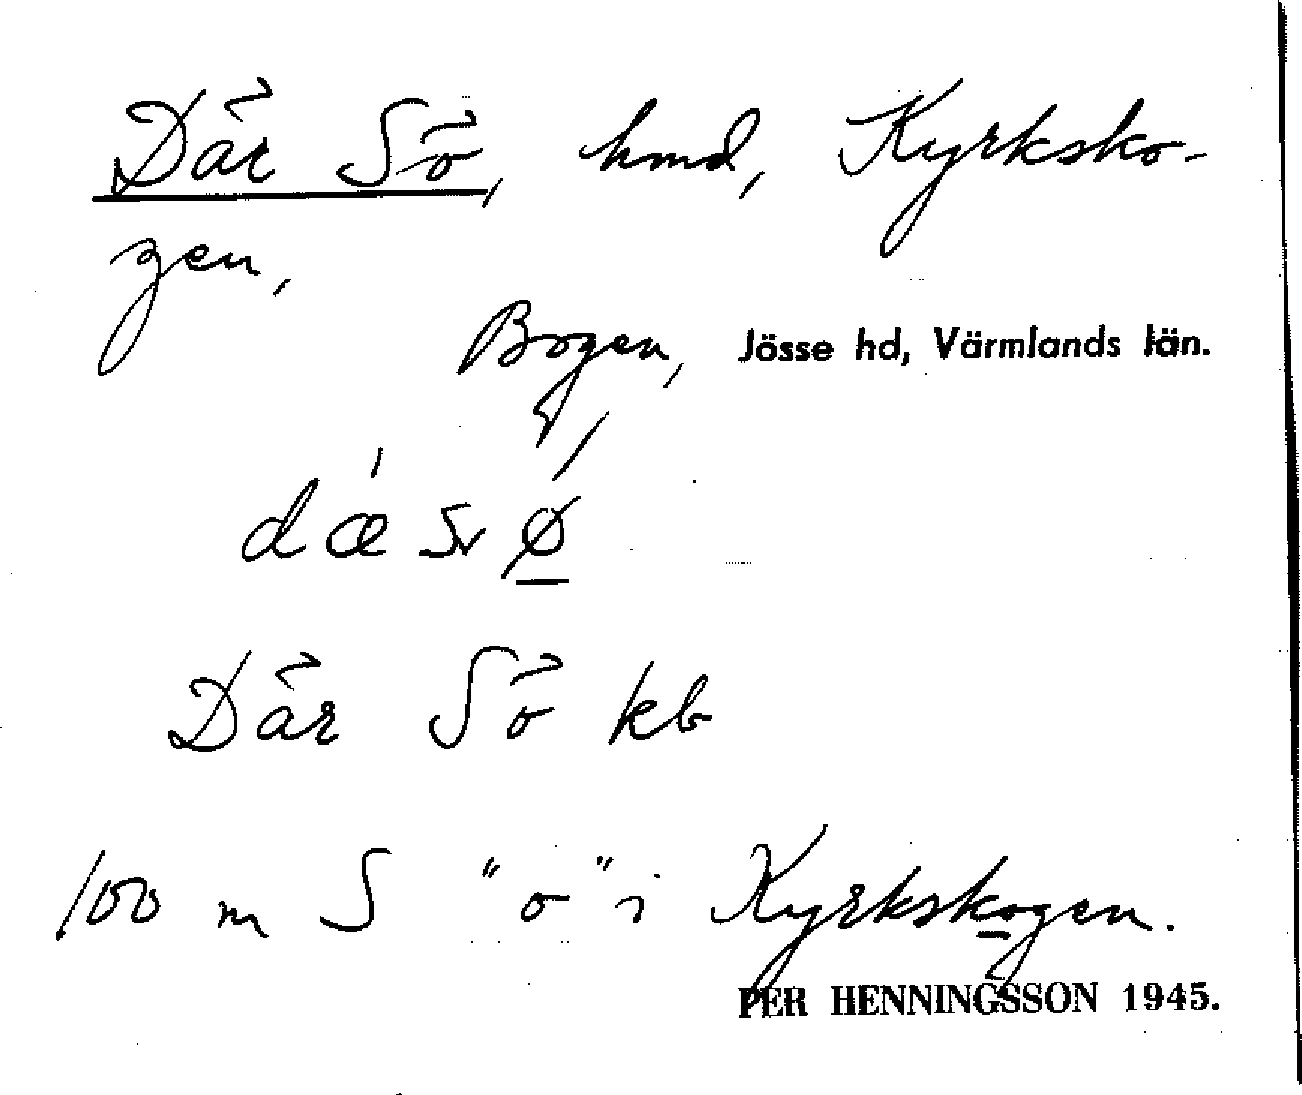 Där Sö, hmd, Kyrksko-
gen,
Bogen, Jösse hd, Värmlands län.
Där Sö kb
100 m S "o" i Kyrkskogen.
PER HENNINGSSON 1945.